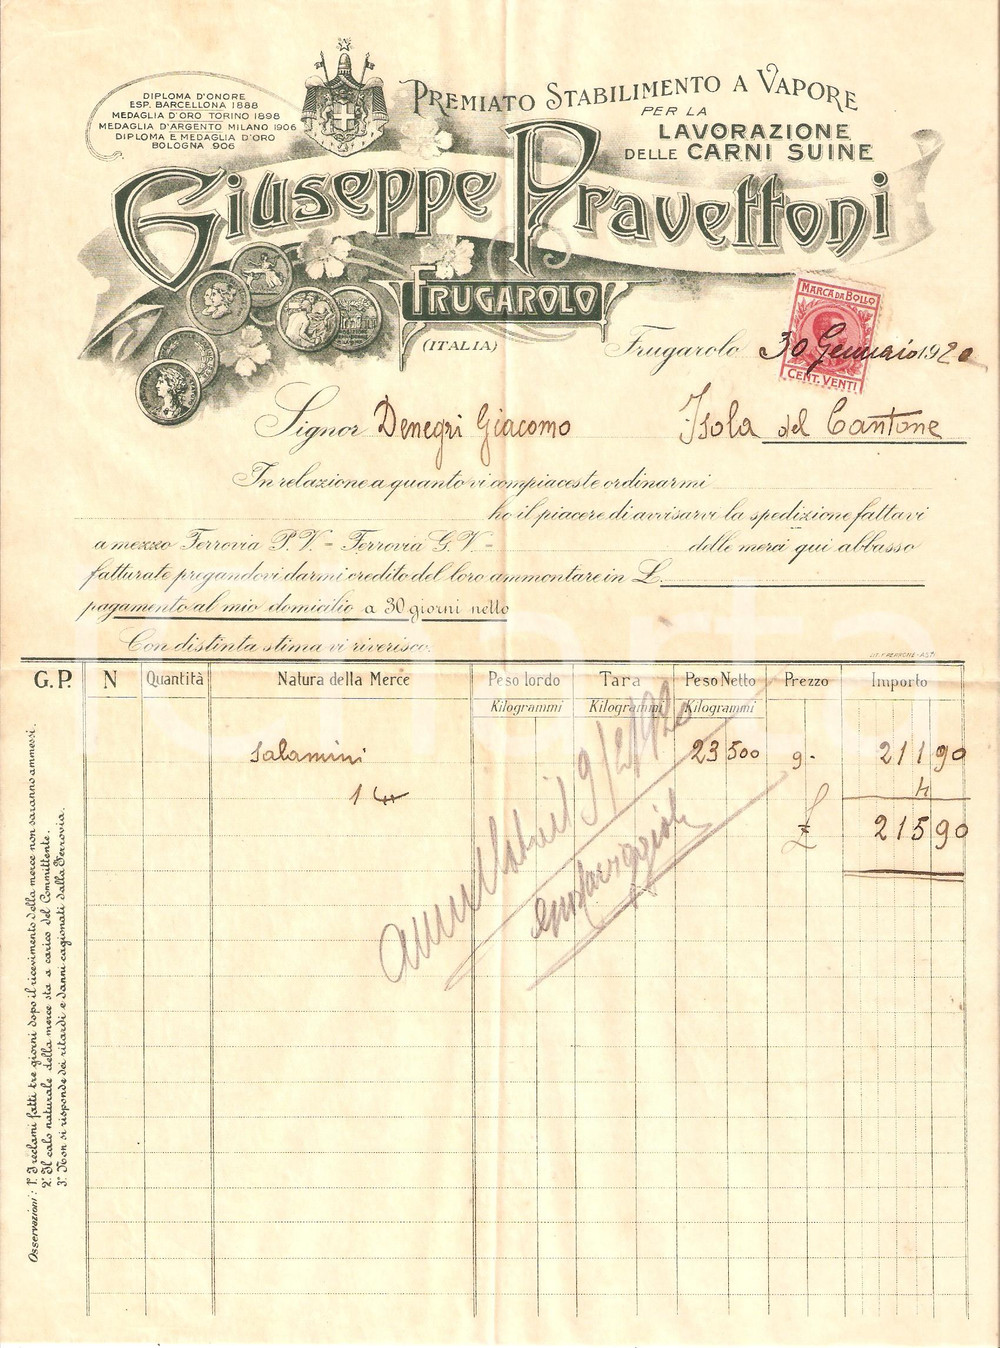 DIPLOMA D'ONORE
ESP. BARCELLONA 1888
MEDAGLIA D'ORO TORINO 1898
MEDAGLIA D'ARGENTO MILANO 1906
DIPLOMA E MEDAGLIA D'ORO
BOLOGNA 906
PREMIATO STABILIMENTO A VAPORE
PER LA
LAVORAZIONE
DELLE CARNI SUINE
Giuseppe Pravettoni
FRUGAROLO
(ITALIA)
MARCA DA BOLLO
CENT. VENTI
Frugarolo 30 Gennaio 1920
Signor Denegri Giacomo Isola del Cantone
In relazione a quanto vi compiaceste ordinarmi
ho il piacere di avvisarvi la spedizione fattavi
a mezzo Ferrovia P. V. = Ferrovia G. V. = delle merci qui abbasso
fatturate pregandovi darmi credito del loro ammontare in L.
pagamento al mio domicilio a 30 giorni netto
Con distinta stima vi riverisco.
G. P. N Quantità Natura della Merce Peso lordo Tara Peso Netto Prezzo Importo
Kilogrammi Kilogrammi Kilogrammi
Salamini 23 500 9 - 211 90
4
215 90
9/2/920
Osservazioni: 1º I reclami fatti tre giorni dopo il ricevimento della merce non saranno ammessi.
2º Il calo naturale della merce sta a carico del Committente.
3º Non si risponde dei ritardi e danni cagionati dalla Ferrovia.